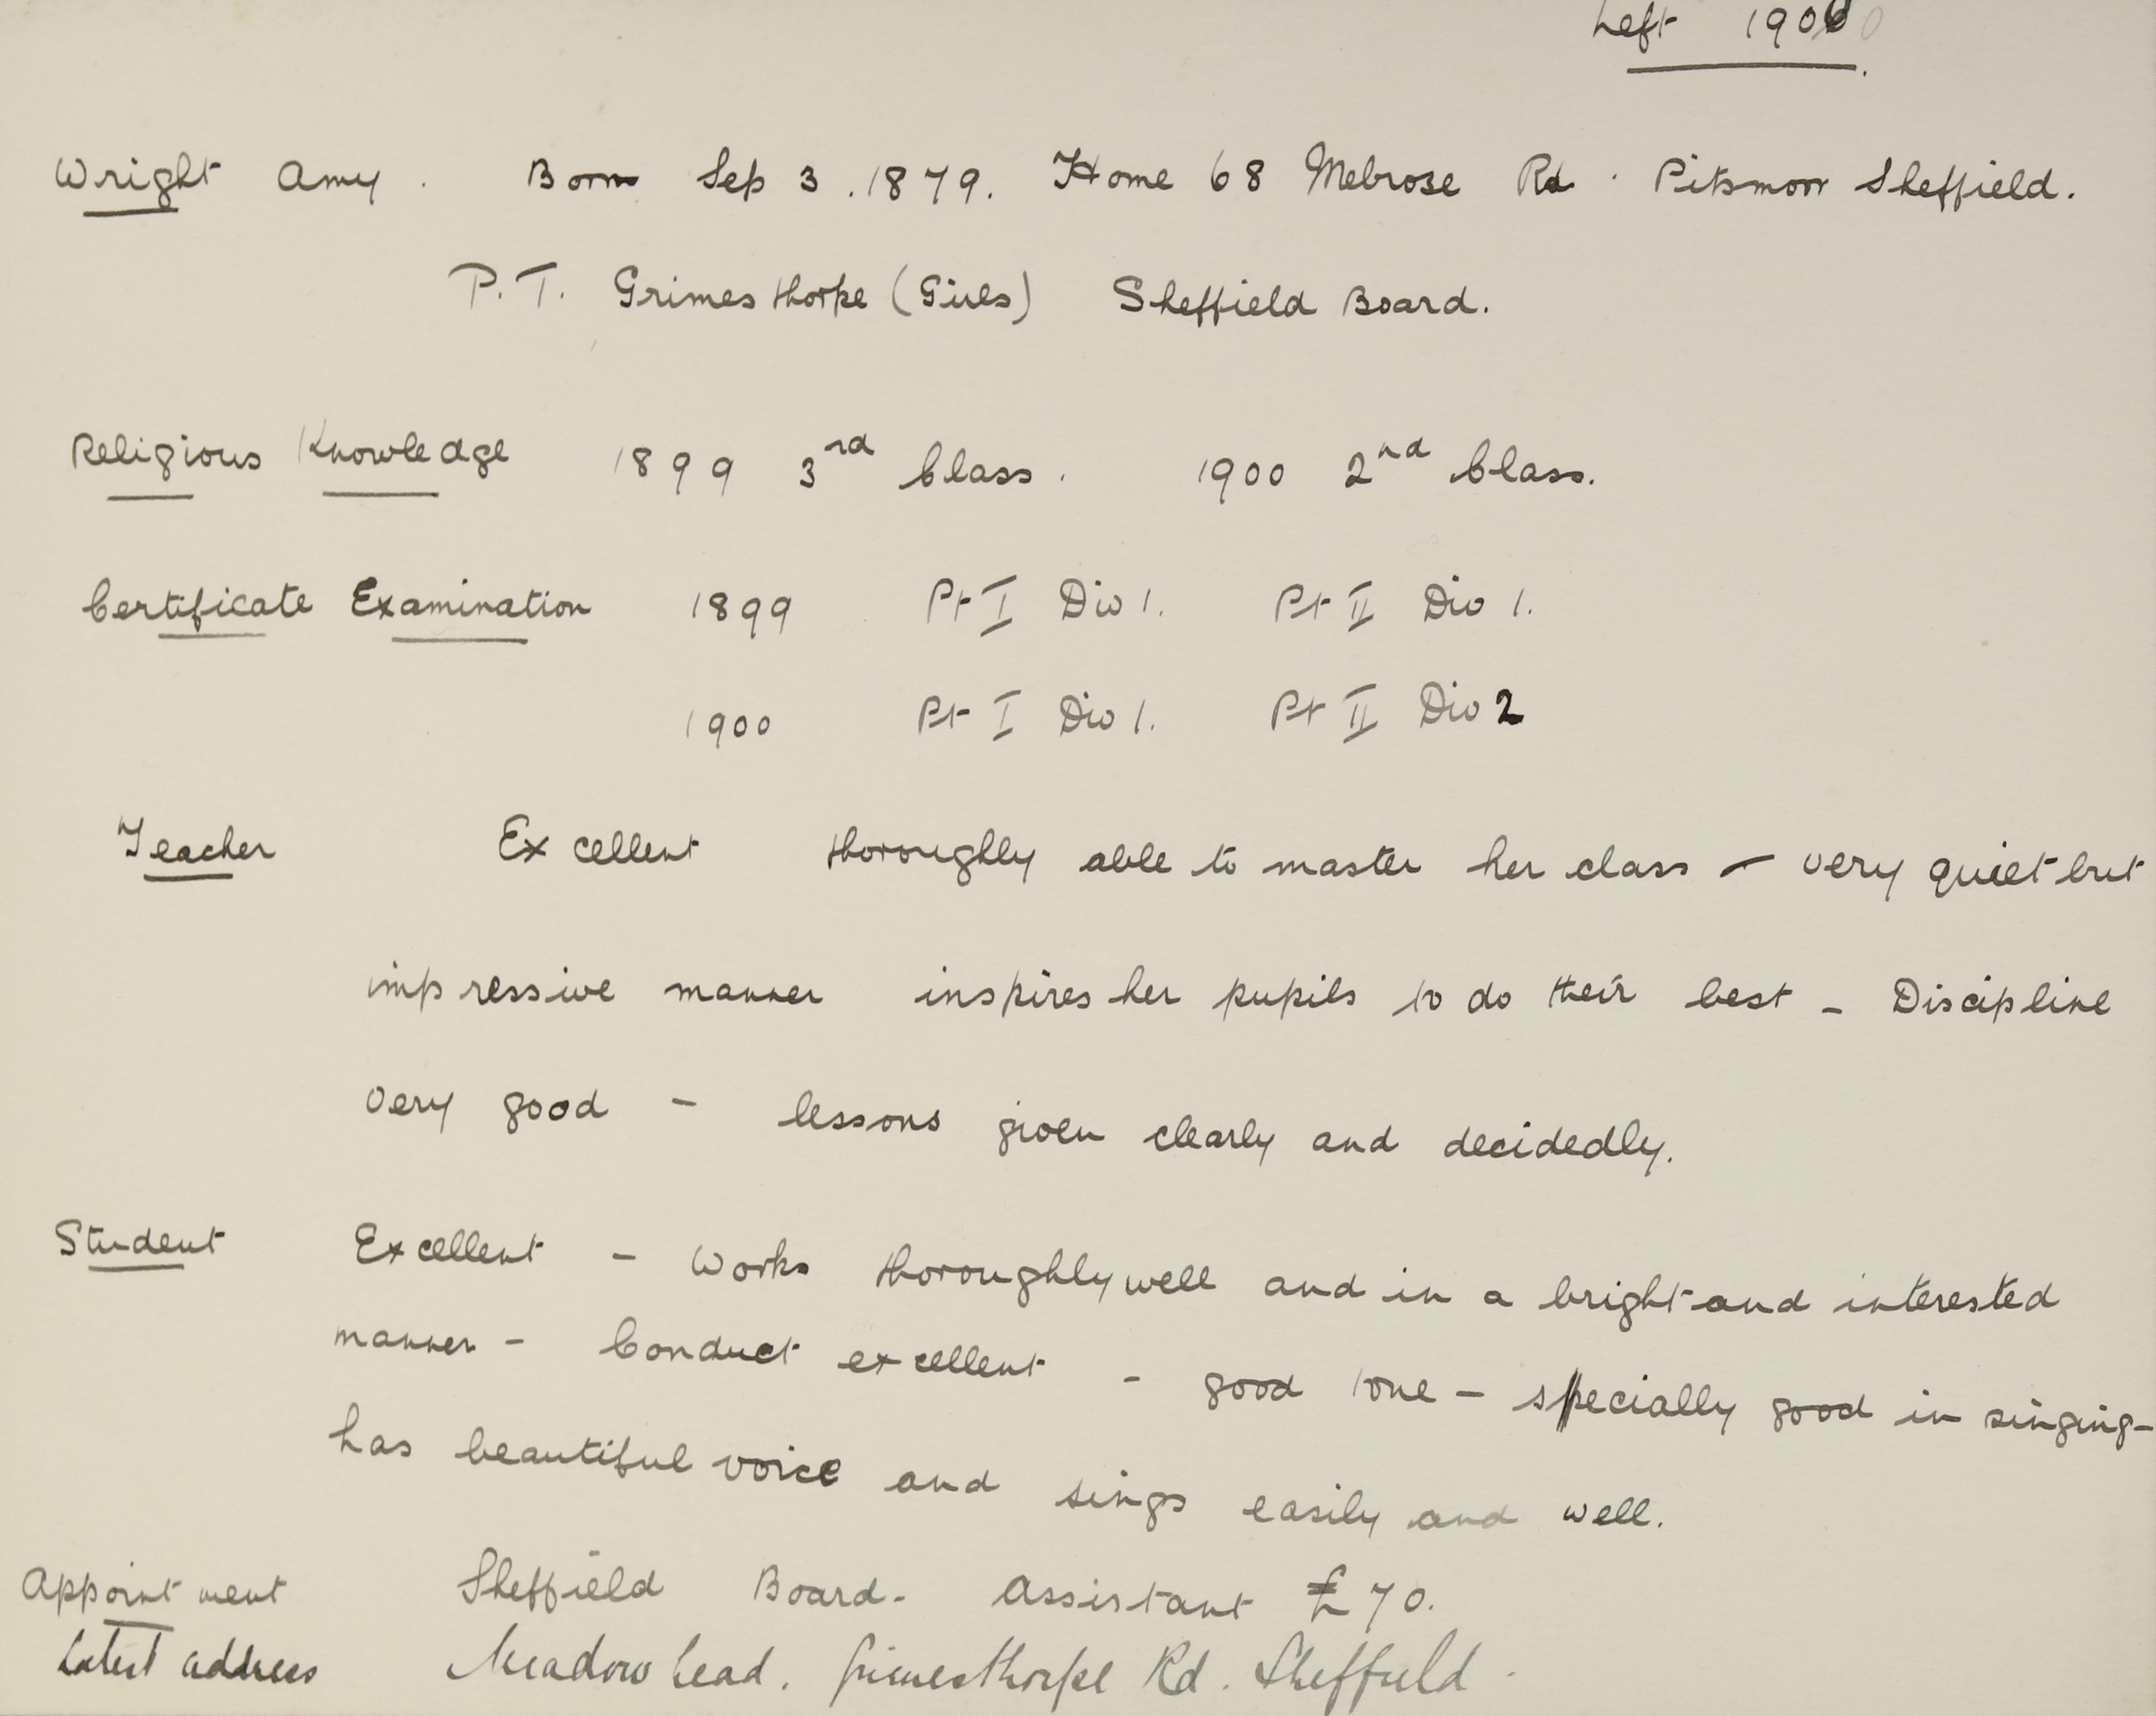 Left 1900
Wright Amy. Born Sep 3. 1879. Home 68 Melrose Rd. Pitsmoor Sheffield.
P.T. Grimesthorpe (Girls) Sheffield Board.
Religious Knowledge 1899 3rd Class. 1900 2nd Class.
Certificate Examination 1899 Pt I Div 1. Pt II Div 1.
1900 Pt I Div 1. Pt II Div 2
Teacher Excellent thoroughly able to master her class - very quiet but
impressive manner inspires her pupils to do their best - Discipline
very good - lessons given clearly and decidedly.
Student Excellent - Works thoroughly well and in a bright and interested
manner - Conduct excellent - good tone - specially good in singing -
has beautiful voice and sings easily and well.
Appointment Sheffield Board - Assistant £70.
Latest address Meadow head. Grimesthorpe Rd. Sheffield.